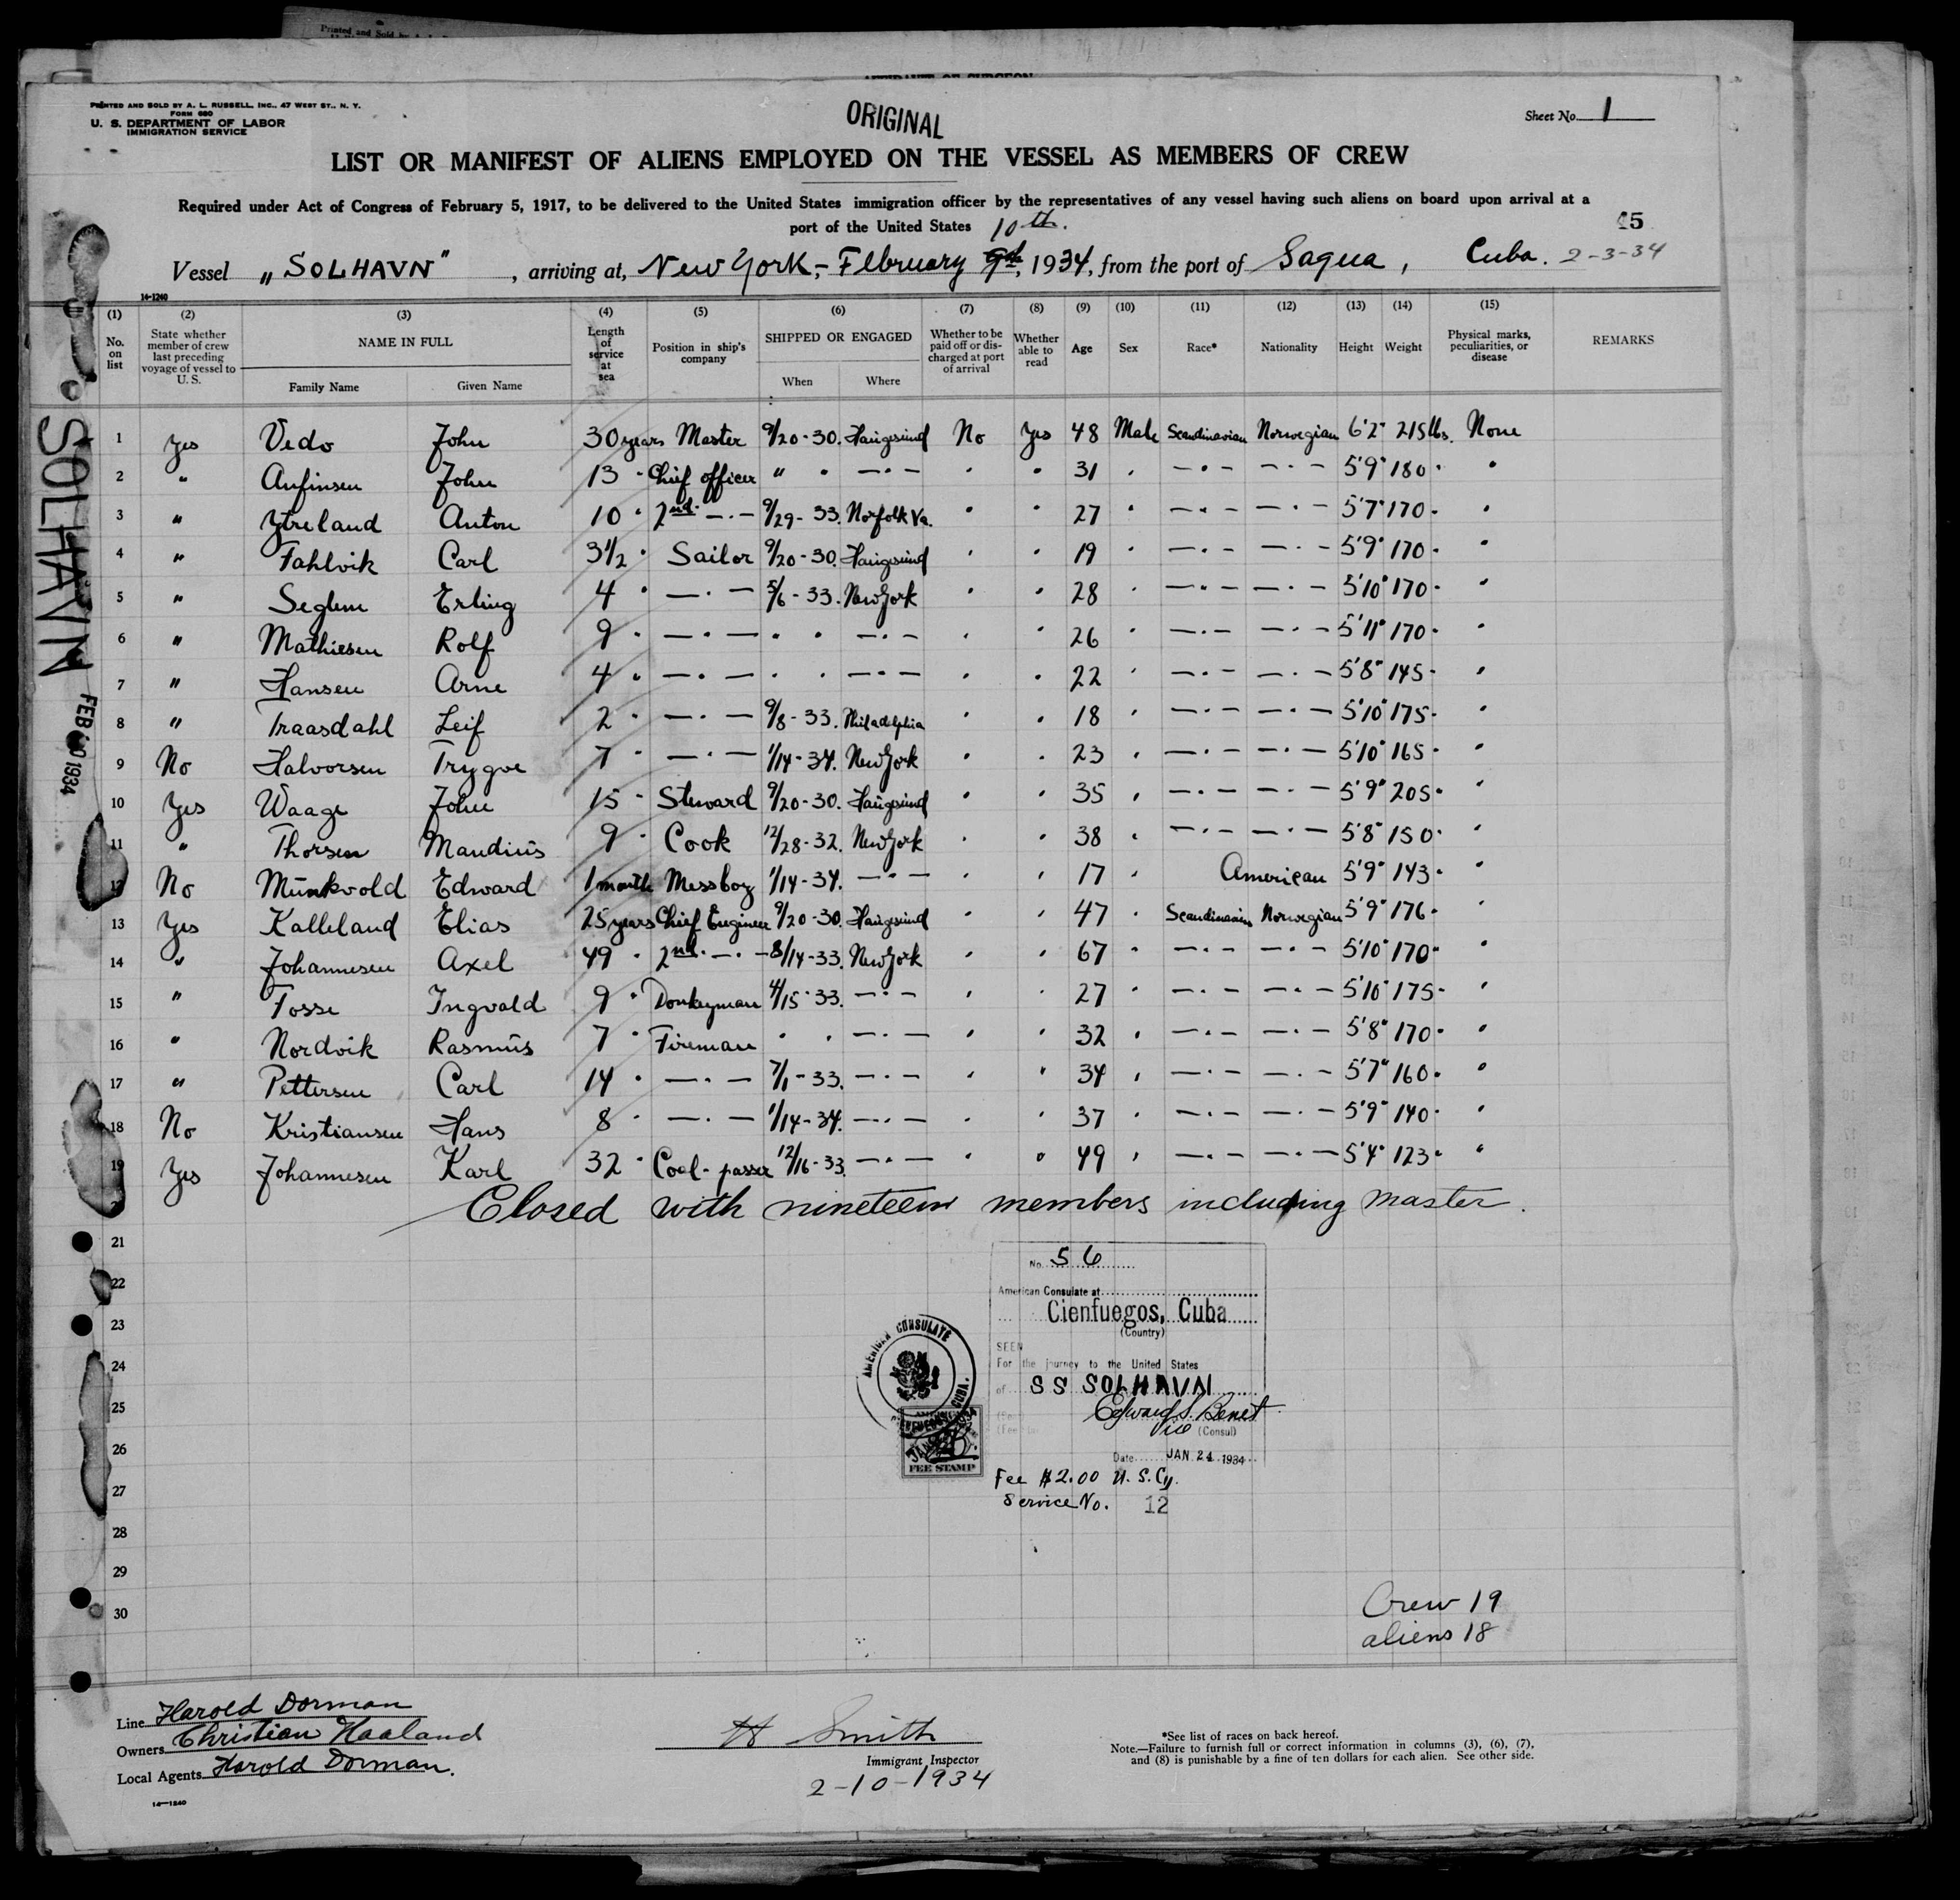 Printed and Sold by A. L.
AFFIDAVIT OF SURGEON
PRINTED AND SOLD BY A. L. RUSSELL, INC., 47 WEST ST., N. Y.
FORM 680
U. S. DEPARTMENT OF LABOR
IMMIGRATION SERVICE
ORIGINAL
Sheet No. 1
LIST OR MANIFEST OF ALIENS EMPLOYED ON THE VESSEL AS MEMBERS OF CREW
Required under Act of Congress of February 5, 1917, to be delivered to the United States immigration officer by the representatives of any vessel having such aliens on board upon arrival at a
port of the United States 10th. 45
Vessel „SOLHAVN", arriving at, New York,- February 9th, 1934, from the port of Sagua, Cuba. 2-3-34
14-1240
(1) (2) (3) (4) (5) (6) (7) (8) (9) (10) (11) (12) (13) (14) (15)
No. on list State whether member of crew last preceding voyage of vessel to U. S. NAME IN FULL Length of service at sea Position in ship's company SHIPPED OR ENGAGED Whether to be paid off or discharged at port of arrival Whether able to read Age Sex Race* Nationality Height Weight Physical marks, peculiarities, or disease REMARKS
Family Name Given Name When Where
1 Yes Vedo John 30 years Master 9/20-30. Haugesund No Yes 48 Male Scandinavian Norwegian 6'2" 215 lbs. None
2 " Anfinsen John 13 " Chief officer " " —"— " " 31 " —"— —"— 5'9" 180 " "
3 " Ytreland Anton 10 " 2nd. —"— 9/29-33. Norfolk Va. " " 27 " —"— —"— 5'7" 170 " "
4 " Fahlvik Carl 3 1/2 " Sailor 9/20-30. Haugesund " " 19 " —"— —"— 5'9" 170 " "
5 " Seglem Erling 4 " —"— 5/6-33. New York " " 28 " —"— —"— 5'10" 170 " "
6 " Mathiesen Rolf 9 " —"— " " —"— " " 26 " —"— —"— 5'11" 170 " "
7 " Hansen Arne 4 " —"— " " —"— " " 22 " —"— —"— 5'8" 145 " "
8 " Traasdahl Leif 2 " —"— 9/8-33. Philadelphia " " 18 " —"— —"— 5'10" 175 " "
9 No Halvorsen Trygve 7 " —"— 1/14-34. New York " " 23 " —"— —"— 5'10" 165 " "
10 Yes Waage John 15 " Steward 9/20-30. Haugesund " " 35 " —"— —"— 5'9" 205 " "
11 " Thorsen Maudius 9 " Cook 12/28-32. New York " " 38 " —"— —"— 5'8" 150 " "
12 No Munkvold Edward 1 month Messboy 1/14-34. —"— " " 17 " American 5'9" 143 " "
13 Yes Kalleland Elias 25 years Chief Engineer 9/20-30. Haugesund " " 47 " Scandinavian Norwegian 5'9" 176 " "
14 " Johannesen Axel 49 " 2nd. —"— 8/14-33. New York " " 67 " —"— —"— 5'10" 170 " "
15 " Fosse Ingvald 9 " Donkeyman 4/15-33. —"— " " 27 " —"— —"— 5'10" 175 " "
16 " Nordvik Rasmus 7 " Fireman " " —"— " " 32 " —"— —"— 5'8" 170 " "
17 " Pettersen Carl 14 " —"— 7/1-33. —"— " " 34 " —"— —"— 5'7" 160 " "
18 No Kristiansen Hans 8 " —"— 1/14-34. —"— " " 37 " —"— —"— 5'9" 140 " "
19 Yes Johannesen Karl 32 " Coal-passer 12/16-33. —"— " " 49 " —"— —"— 5'4" 123 " "
Closed with nineteen members including master.
21
22
23
24
25
26
27
28
29
30
SOLHAVN
FEB 10 1934
No. 56
American Consulate at
Cienfuegos, Cuba
(Country)
SEEN
For the journey to the United States
of SS SOLHAVN
Edward S. Benet
Vice (Consul)
Date JAN 24 1934
Fee $2.00 U. S. Cy.
Service No. 12
AMERICAN CONSULATE
CIENFUEGOS, CUBA.
FEE STAMP
Crew 19
aliens 18
Line Harold Dorman
Owners Christian Haaland
Local Agents Harold Dorman.
14—1240
H Smith
Immigrant Inspector
2-10-1934
*See list of races on back hereof.
Note.—Failure to furnish full or correct information in columns (3), (6), (7),
and (8) is punishable by a fine of ten dollars for each alien. See other side.